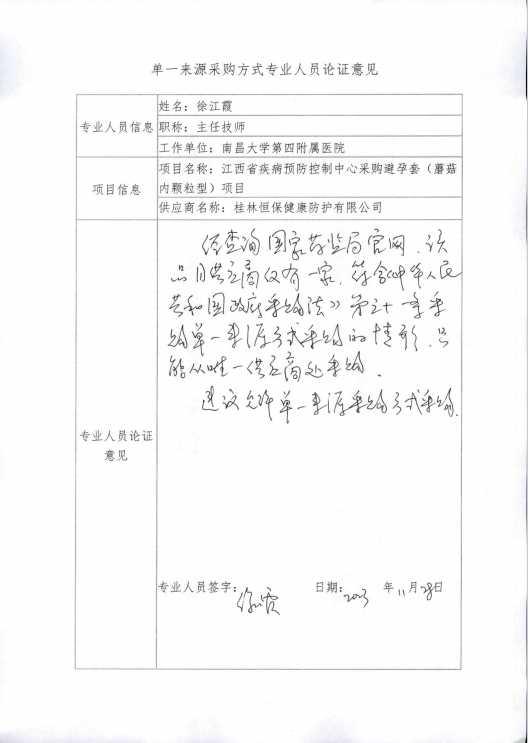 单一来源采购方式专业人员论证意见
专业人员信息
姓名：徐江霞
职称：主任技师
工作单位：南昌大学第四附属医院
项目信息
项目名称：江西省疾病预防控制中心采购避孕套（蘑菇
内颗粒型）项目
供应商名称：桂林恒保健康防护有限公司
专业人员论证
意见
经查询国家药监局官网，该
品目供应商仅有一家，符合《中华人民
共和国政府采购法》第三十一条采
购单一来源方式采购的情形，只
能从唯一供应商处采购。
建议允许单一来源采购方式采购。
专业人员签字：徐江霞
日期：2023 年 11 月 28 日